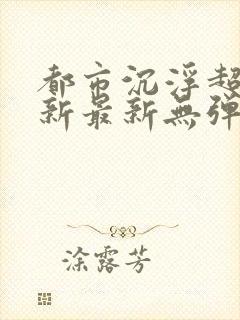 都市沉浮超
新最新無弹
涂露芳